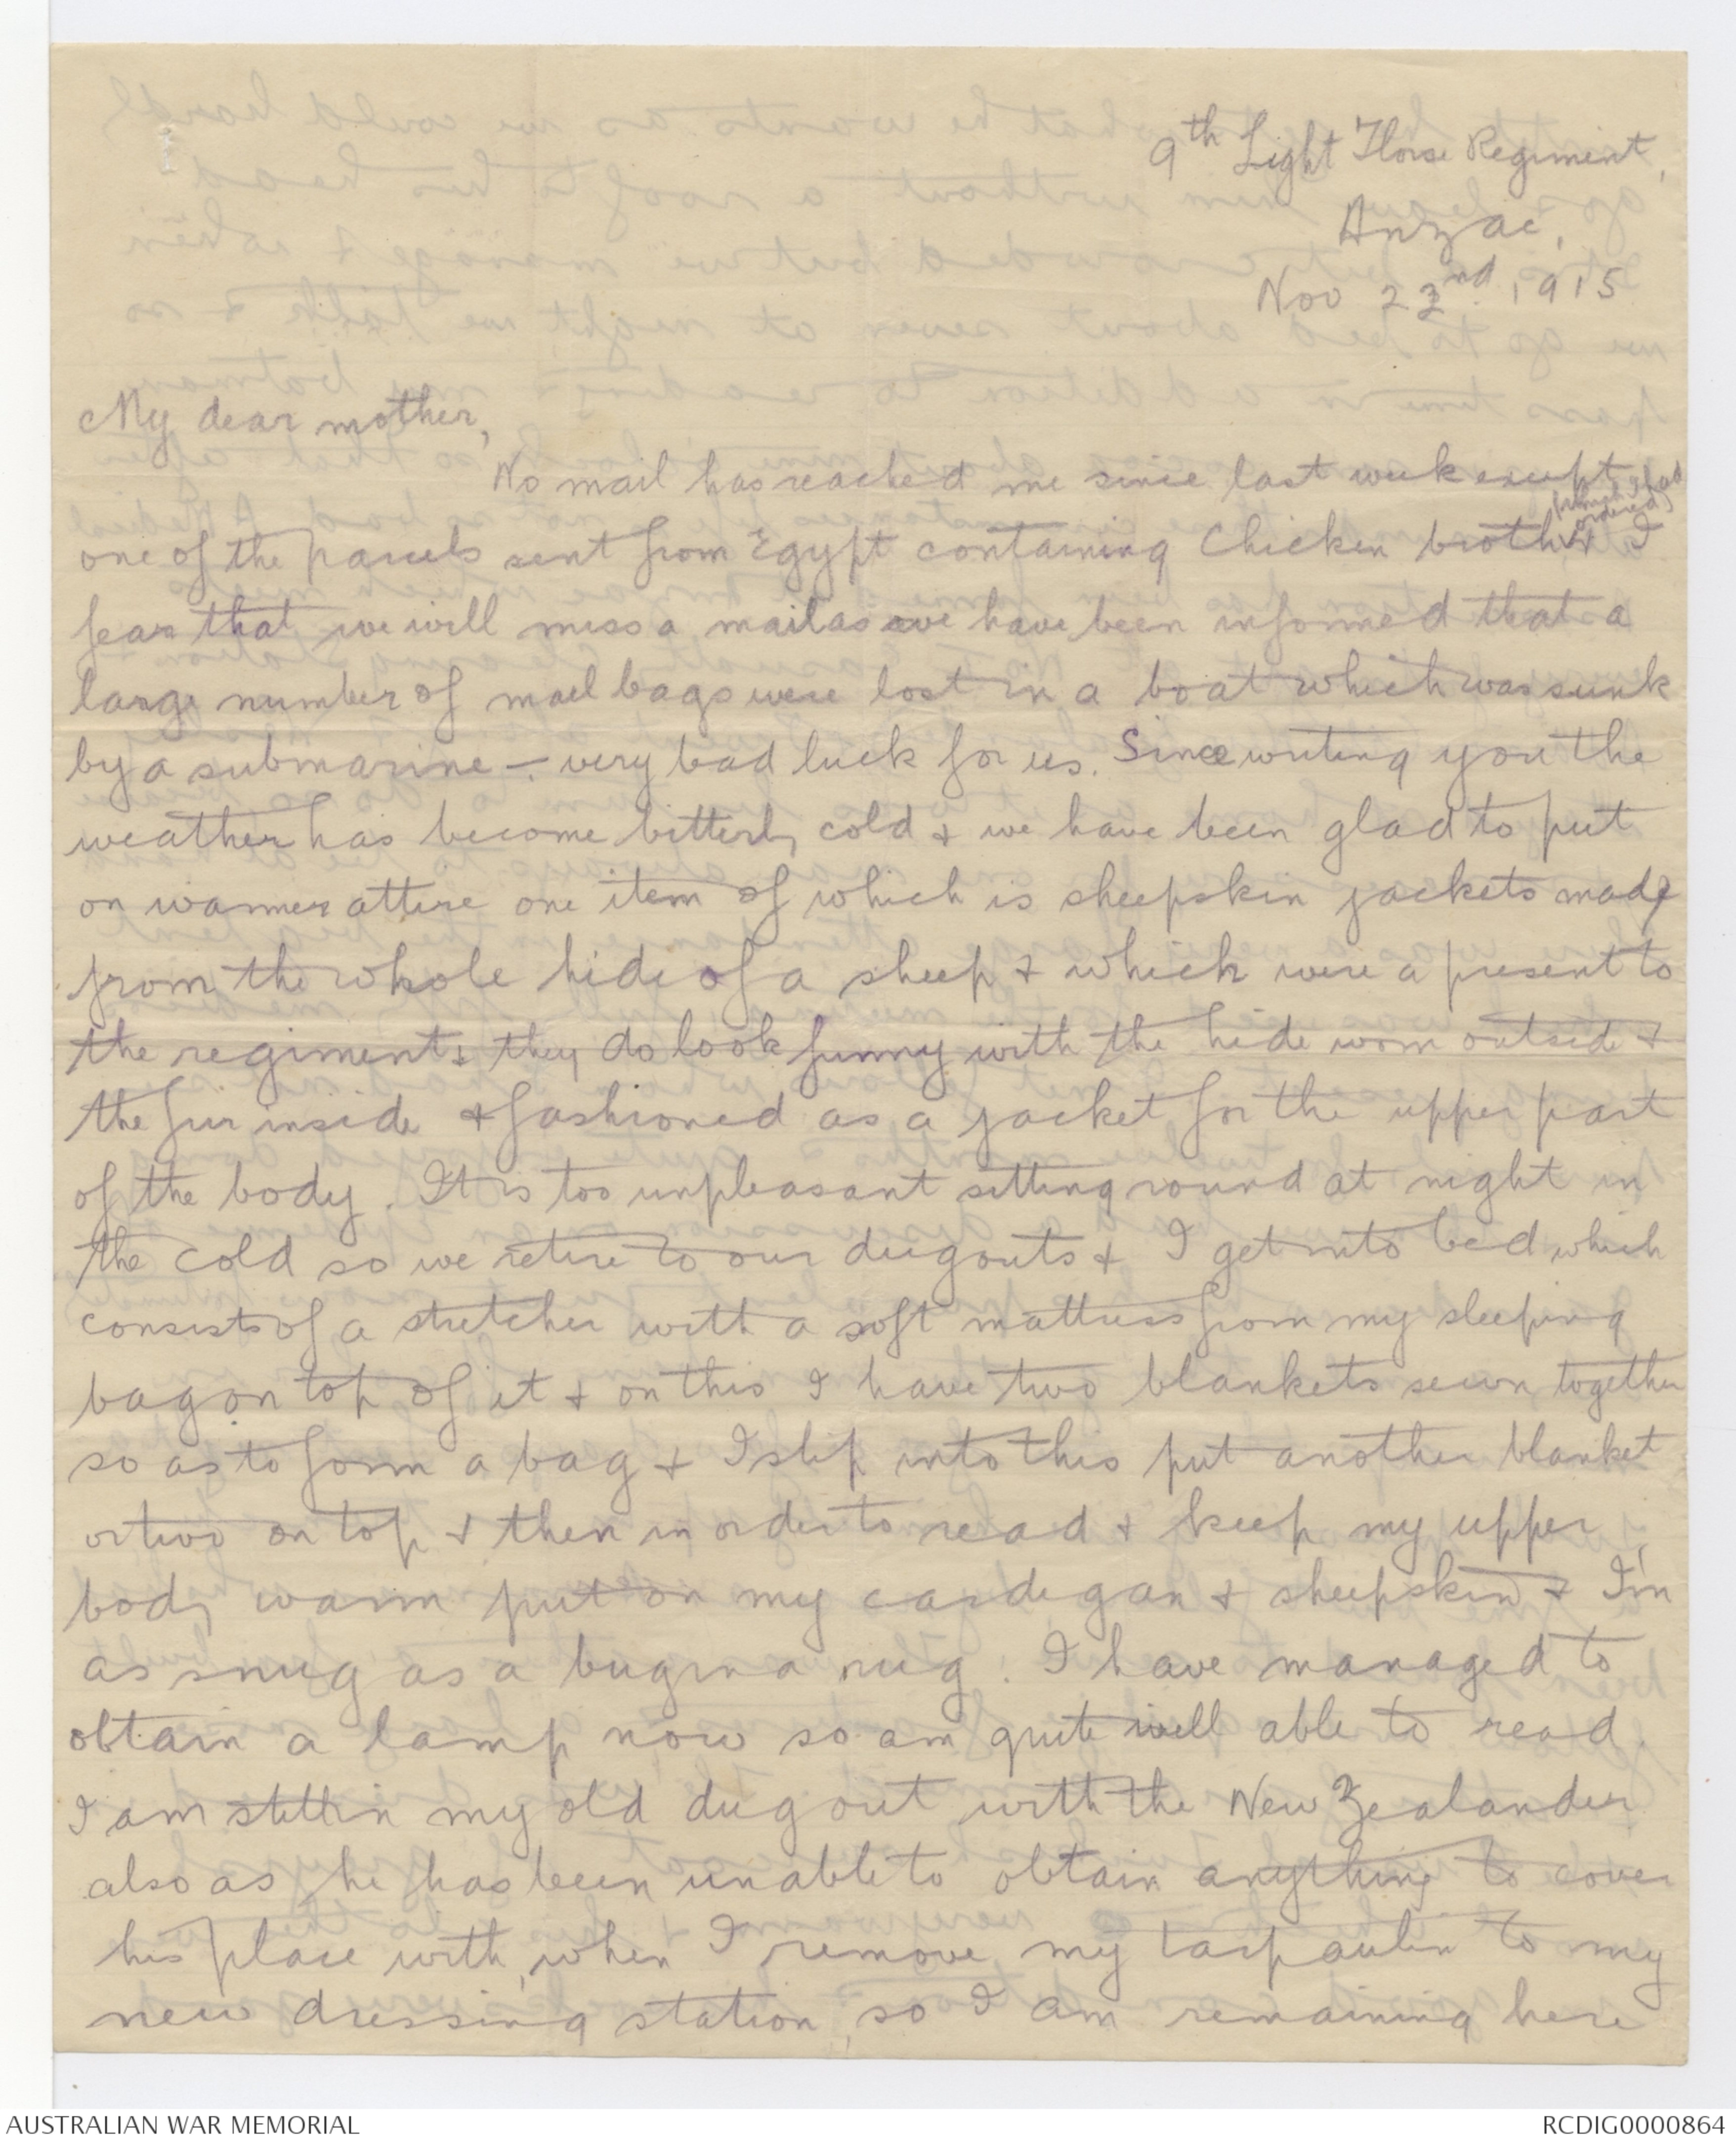 9th Light Horse Regiment,
Anzac,
Nov 22nd. 1915
My dear mother,
No mail has reached me since last week except
one of the parcels sent from Egypt containing Chicken broth & I
(which I had
ordered)
fear that we will miss a mail as we have been informed that a
large number of mail bags were lost in a boat which was sunk
by a submarine - very bad luck for us. Since writing you the
weather has become bitterly cold & we have been glad to put
on warmer attire one item of which is sheepskin jackets made
from the whole hide of a sheep & which were a present to
the regiment & they do look funny with the hide worn outside &
the fur inside & fashioned as a jacket for the upper part
of the body. It is too unpleasant sitting round at night in
the cold so we retire to our dugouts & I get into bed which
consists of a stretcher with a soft mattress from my sleeping
bag on top of it & on this I have two blankets sewn together
so as to form a bag & I slip into this put another blanket
or two on top & then in order to read & keep my upper
body warm put on my cardigan & sheepskin & I'm
as snug as a bug in a rug. I have managed to
obtain a lamp now so am quite well able to read.
I am still in my old dug out with the New Zealander
also as he has been unable to obtain anything to cover
his place with, when I remove my tarpaulin to my
new dressing station, so I am remaining here
AUSTRALIAN WAR MEMORIAL
RCDIG0000864